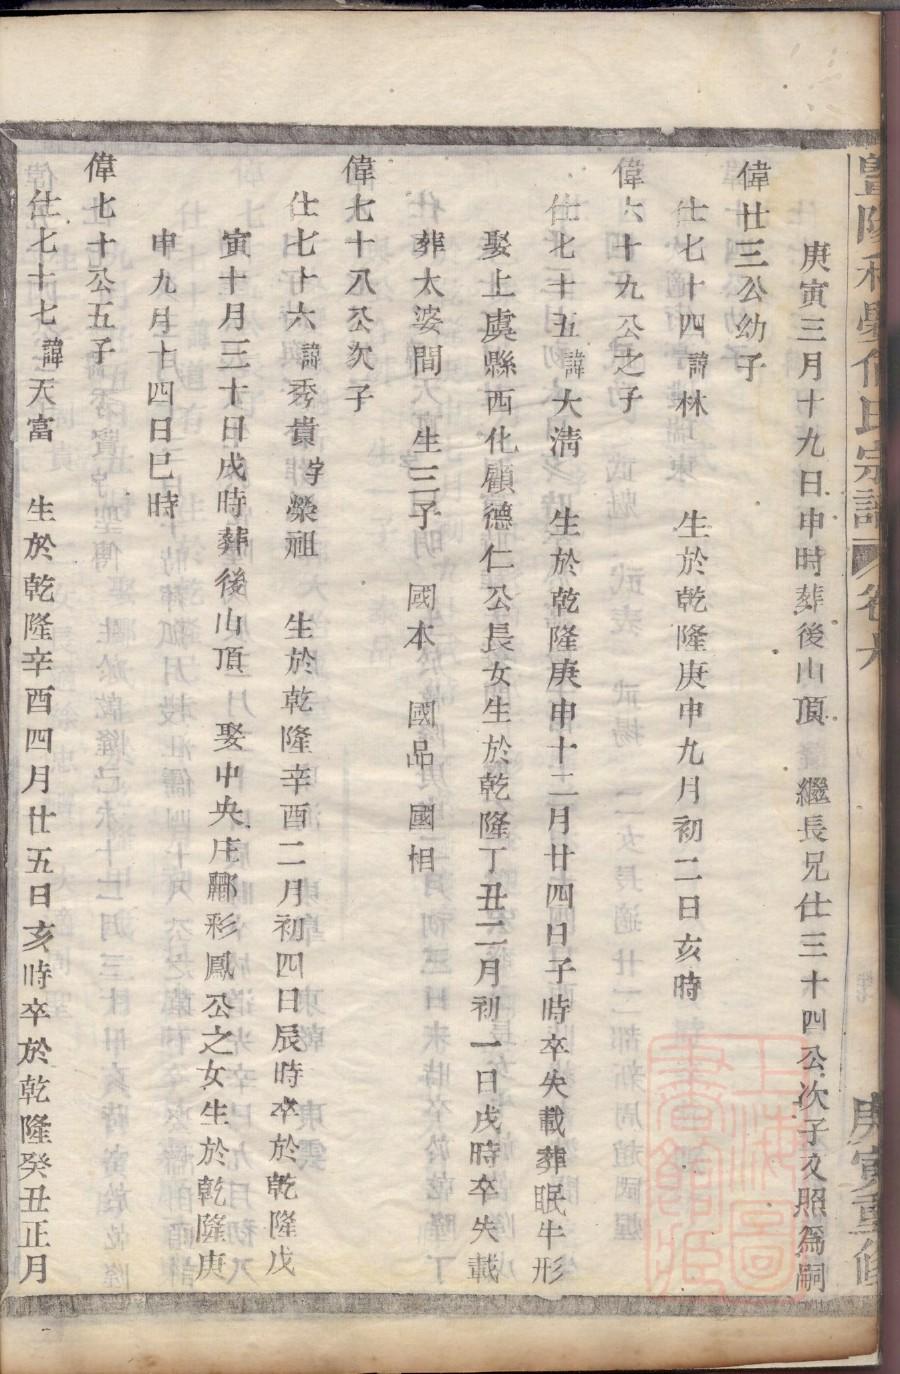 庚寅三月十九日申時葬後山頂 繼長兄仕三十四公次子文照爲嗣
偉廿三公幼子
仕七十四諱林 生於乾隆庚申九月初二日亥時
偉六十九公之子
仕七十五諱大淸 生於乾隆庚申十二月廿四日子時卒失載葬眠牛形
娶上虞縣西化顧德仁公長女生於乾隆丁丑二月初一日戌時卒失載
葬太婆間 生三子 國本 國品 國相
偉七十八公次子
仕七十六諱秀貴字榮祖 生於乾隆辛酉二月初四日辰時卒於乾隆戊
寅十月三十日戌時葬後山頂 娶中央庄酈彩鳳公之女生於乾隆庚
申九月十四日巳時
偉七十公五子
仕七十七諱天富 生於乾隆辛酉四月廿五日亥時卒於乾隆癸丑正月